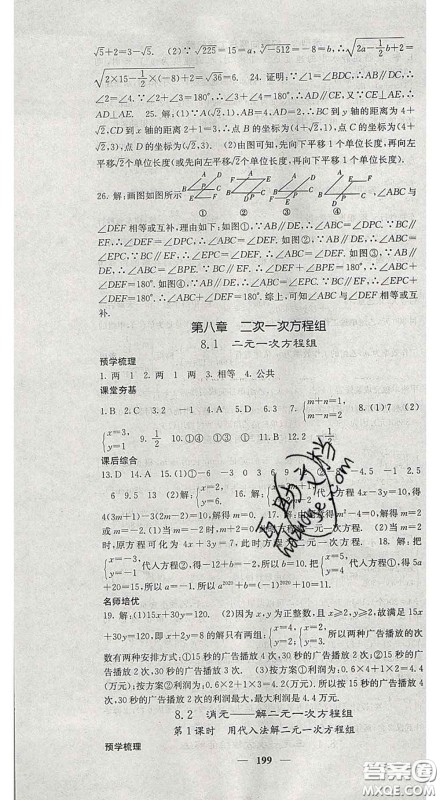 √5+2=3-√5. (2)∵√225=15=a,∛-512=-8=b,∴√(2a-1/2b+2)=
√(2×15-1/2×(-8)+2)=√36=6. 24. 证明:∵∠1=∠BDC,∴AB∥DC,∴
∠2=∠4.∵∠2+∠3=180°,∴∠4+∠3=180°,∴AD∥CE.又∵CE⊥AE,∴
AD⊥AE. 25. 解:(1)∵AB∥DC∥x轴,AD=BC=2,∴BC到y轴的距离为4
+√2,CD到x轴的距离2+1=3,∴点B的坐标为(4+√2,1),点C的坐标为(4
+√2,3),点D的坐标为(√2,3). (2)由图可知,先向下平移1个单位长度,再向左
平移√2个单位长度(或先向左平移√2个单位长度,再向下平移1个单位长度).
26. 解:画图如图所示 ,∠ABC与
① ② ③ ④
∠DEF相等或互补,理由如下:如图①,∵AB∥DE,∴∠ABC=∠DPC.∵BC∥
EF,∴∠DEF=∠DPC,∴∠ABC=∠DEF.如图②,∵AB∥DE,∴∠ABC=
∠EPC.∵BC∥EF,∴∠DEF=∠EPC,∴∠ABC=∠DEF.如图③,∵AB∥
DE,∴∠ABC=∠DPC.∵BC∥EF,∴∠DEF+∠DPC=180°,∴∠ABC+
∠DEF=180°.如图④,∵AB∥DE,∴∠ABC=∠EPC.∵BC∥EF,∴∠EPC
+∠DEF=180°,∴∠ABC+∠DEF=180°.综上,可知∠ABC与∠DEF相等或互
补.
第八章 二次一次方程组
8.1 二元一次方程组
预学梳理
1. 两 1 2. 两 1 两 3. 相等 4. 公共
课堂夯基
1. B 2. C 3. 2 4. A 5. D 6. 3 7. {m+n=1, m-n=2 8. (1)7 (2)
{x=3, y=1 9. 1/2 10. ①④ ①③ ① 11. B 12. 1/2
课后综合
13. D 14. A 15. (1)① -6 -3 0 3 6 9 ② 8 -2 -1.5 2.5
6 9.5 13 (2){x=2, y=6. 16. 代入方程4x-3y=10,得
4(3m+1)-3(2m-2)=10.解得m=0. 17. 解:由题意得m²-4=0,解得m=2
或m=-2.(1)当m=-2时, (2)当m=2
时,原方程可化为4x+3y=7,此时方程为二元一次方程. 18. 解:把
{x=5, y=2 代入方程②,得5b-2=8.所以b=2.把
代入方程①,得
-5a=20.所以a=-1.所以a²⁰²⁰+b=(-1)²⁰²⁰+10=11.
名师培优
19. 解:(1)15x+30y=120. (2)因为x,y为正整数,且x≥2,y≥2,故满足15x
+30y=120,即x+2y=8的解只有两组:{x=4, y=2; {x=2, y=3. 所以两种广告播放的次
数有两种安排方式:①15秒的广告播放4次,30秒的广告播放2次;②15秒的广
告播放2次,30秒的广告播放3次. (3)按方案①利润为:0.6×4+1×2=4.4
(万元).按方案②利润为:0.6×2+1×3=4.2(万元).所以15秒的广告播放4
次,30秒的广告播放2次的利润最大,最大利润是4.4万元.
8.2 消元——解二元一次方程组
第1课时 用代入法解二元一次方程组
预学梳理
199
答案圈
MXQE.COM